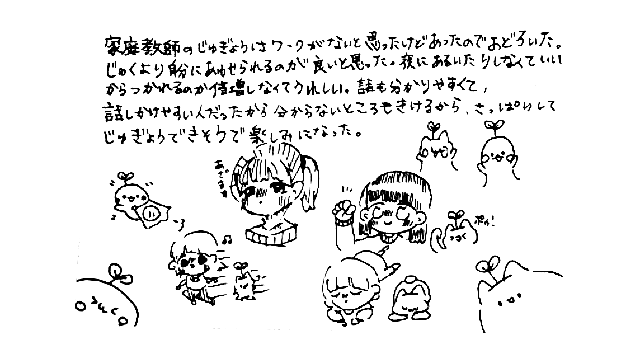 家庭教師のじゅぎょうはワークがないと思ったけどあったのでおどろいた。
じゅくより自分にあわせられるのが良いと思った。夜にあるいたりしなくていい
からつかれるのが倍増しなくてうれしい。話も分かりやすくて、
話しかけやすい人だったから分からないところもきけるから、さっぱりして
じゅぎょうできそうで楽しみになった。